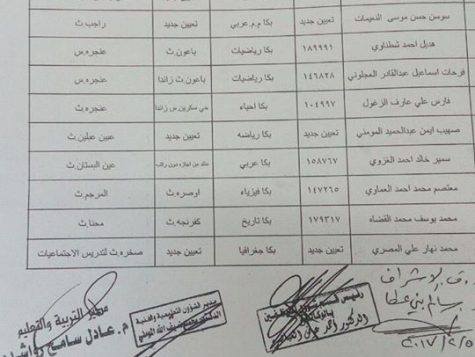 سوسن حسن موسى النعيمات تعيين جديد بكا م.م.عربي تعيين جديد راجب.ث
هديل احمد شطناوي ١٨٩٩٩١ بكا رياضيات باعون.ث عنجره.س
فرحات اسماعيل عبدالقادر المجلوني ١٤٦٨٢٨ بكا رياضيات باعون.ث زائدا عنجره.ث
فارس علي عارف الزغول ١٠٤٩٩٧ بكا احياء س.زائدا عنجره.ث
صهيب ايمن عبدالحميد المومني تعيين جديد بكا رياضه تعيين جديد عبين عبلين.ث
سمير خالد احمد الغزوي ١٥٨٧٦٧ بكا عربي عائد من اجازه دون راتب عين البستان.ث
معتصم محمد احمد العماري ١٤٧٢٦٥ بكا فيزياء اوصره.ث المرجم.ث
محمد يوسف محمد القضاه ١٧٩٣١٧ بكا تاريخ كفرنجه.ث محنا.ث
محمد نهار علي المصري تعيين جديد بكا جغرافيا تعيين جديد صخره.ث لتدريس الاجتماعيات
مدير التربية والتعليم
مدير الشؤون التعليمية والفنية
رئيس قسم
الدكتور